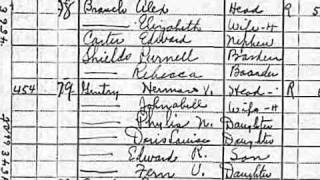 78 Branch Alex Head 9
— Elizabeth Wife-H
Carter Edward Nephew
Shields Vernell
— Rebecca Boarder
454 79 Gentry Herman V. Head R
— Wife-H
— Phylis N. Daughter
— Doris Louise Daughter
— Edward R. Son
— Fern U. Daughter